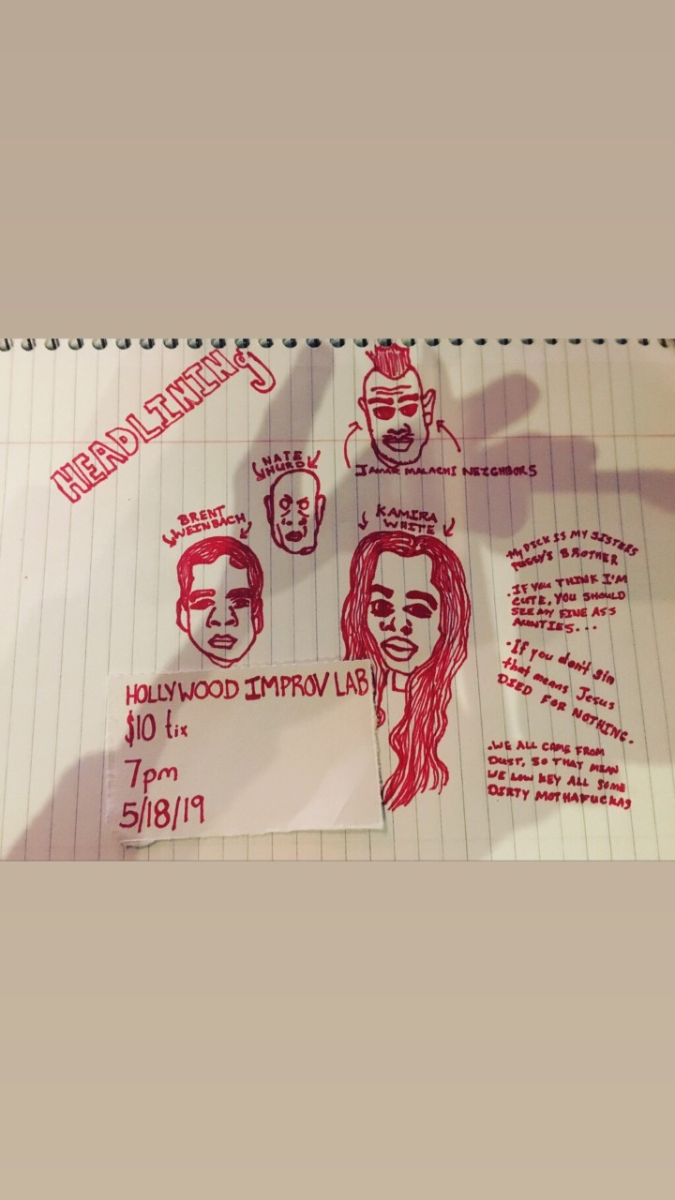 HEADLINING
JAMAR MALACHI NEIGHBORS
NATE
HURD
BRENT
WEINBACH
KAMIRA
WHITE
HOLLYWOOD IMPROV LAB
$10 tix
7pm
5/18/19
My DICK IS MY SISTERS
PUSSY'S BROTHER
·IF YOU THINK I'M
CUTE, YOU SHOULD
SEE MY FINE ASS
AUNTIES...
·If you don't sin
that means Jesus
DIED FOR NOTHING.
·WE ALL CAME FROM
DUST, SO THAT MEAN
WE LOW KEY ALL SOME
DIRTY MOTHAFUCKAS